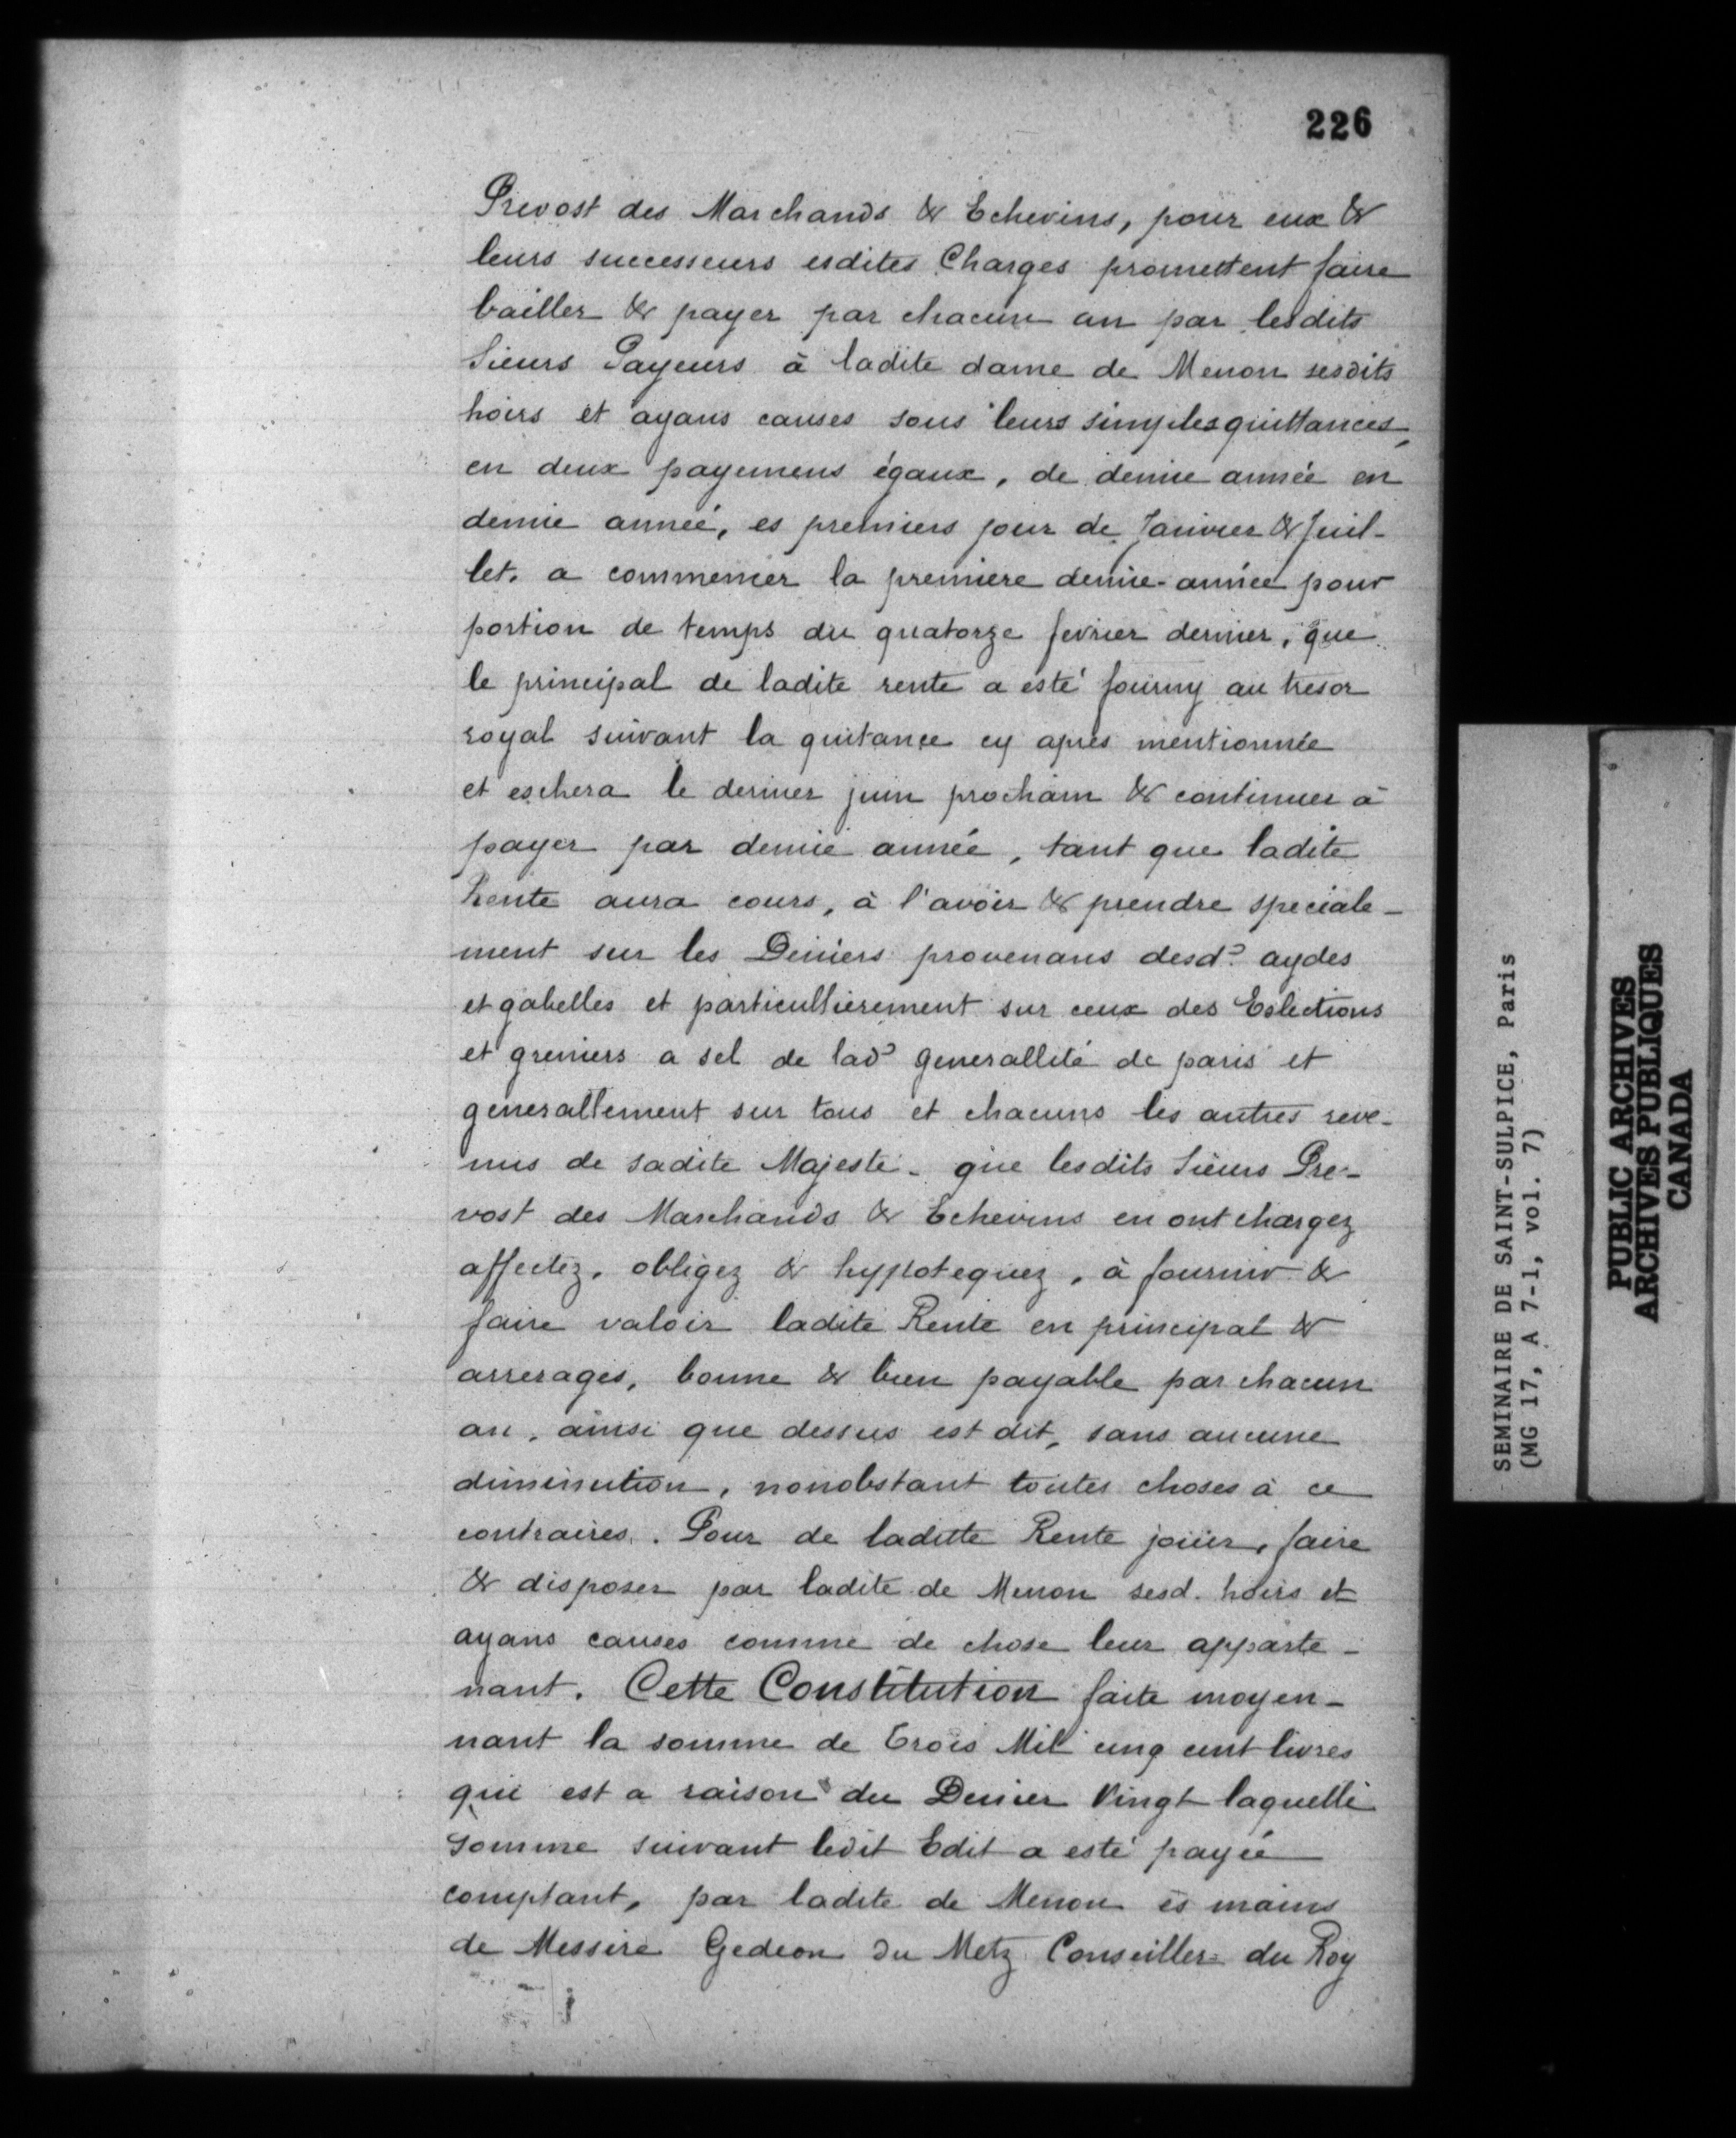 226
Prevost des Marchands & Echevins, pour eux &
leurs successeurs esdites Charges promettent faire
bailler & payer par chacun an par lesdits
Sieurs Payeurs à ladite dame de Menon sesdits
hoirs et ayans causes sous leurs simples quittances,
en deux payemens égaux, de demie année en
demie année, es premiers jour de Janvier & Juil-
let. a commencer la premiere demie-année pour
portion de temps du quatorze fevrier dernier, que
le principal de ladite rente a esté fourny au tresor
royal suivant la quitance cy aprés mentionnée
et eschera le dernier juin prochain & continuer à
payer par demie année, tant que ladite
Rente aura cours, à l'avoir & prendre speciale-
ment sur les Deniers provenans desd. aydes
et gabelles et particullierement sur ceux des Eslections
et greniers a sel de lad. generallité de paris et
generallement sur tous et chacuns les autres reve-
nus de sadite Majesté. que lesdits Sieurs Pre-
vost des Marchands & Echevins en ont chargez
affectez, obligez & hypotequez, à fournir &
faire valoir ladite Rente en principal &
arrerages, bonne & bien payable par chacun
an, ainsi que dessus est dit, sans aucune
diminution, nonobstant toutes choses à ce
contraires. Pour de laditte Rente joüir, faire
& disposer par ladite de Menon sesd. hoirs et
ayans causes comme de chose leur apparte-
nant. Cette Constitution faite moyen-
nant la somme de Trois Mil cinq cent livres
qui est a raison du Denier Vingt laquelle
somme suivant ledit Edit a esté payée
comptant, par ladite de Menon és mains
de Messire Gedeon du Metz Conseiller du Roy
SEMINAIRE DE SAINT-SULPICE, Paris
(MG 17, A 7-1, vol. 7)
PUBLIC ARCHIVES
ARCHIVES PUBLIQUES
CANADA